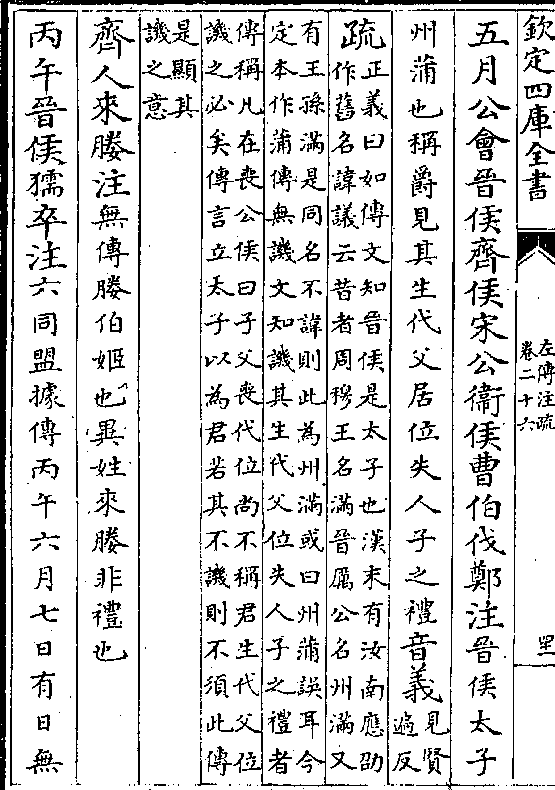 欽定四庫全書
左傳注疏
卷二十六
五月公會晉侯齊侯宋公衛侯曹伯伐鄭注晉侯太子
州蒲也稱爵見其生代父居位失人子之禮音義見賢
遍反
疏正義曰如傳文知晉侯是太子也漢末有汝南應劭
作舊名諱議云昔者周穆王名滿晉厲公名州滿又
有王孫滿是同名不諱則此為州滿或曰州蒲誤耳今
定本作蒲傳無譏文知譏其生代父位失人子之禮者
傳稱凡在喪公侯曰子父喪代位尚不稱君生代父位
譏之必矣傳言立太子以為君若其不譏則不須此傳
是顯其
譏之意
齊人來媵注無傳媵伯姬也異姓來媵非禮也
丙午晉侯獳卒注六同盟據傳丙午六月七日有日無